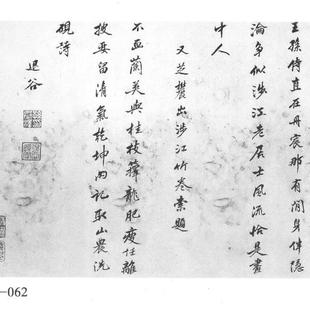 王孫侍直在丹宸那有閒身伴隱
淪争似涉江老居士風流恰是畫
中人
又芝麓出涉江竹卷索題
不並蘭英與桂枝籜龍肥瘦任離
披要留清氣乾坤內記取山農洗
硯詩
退谷
-062